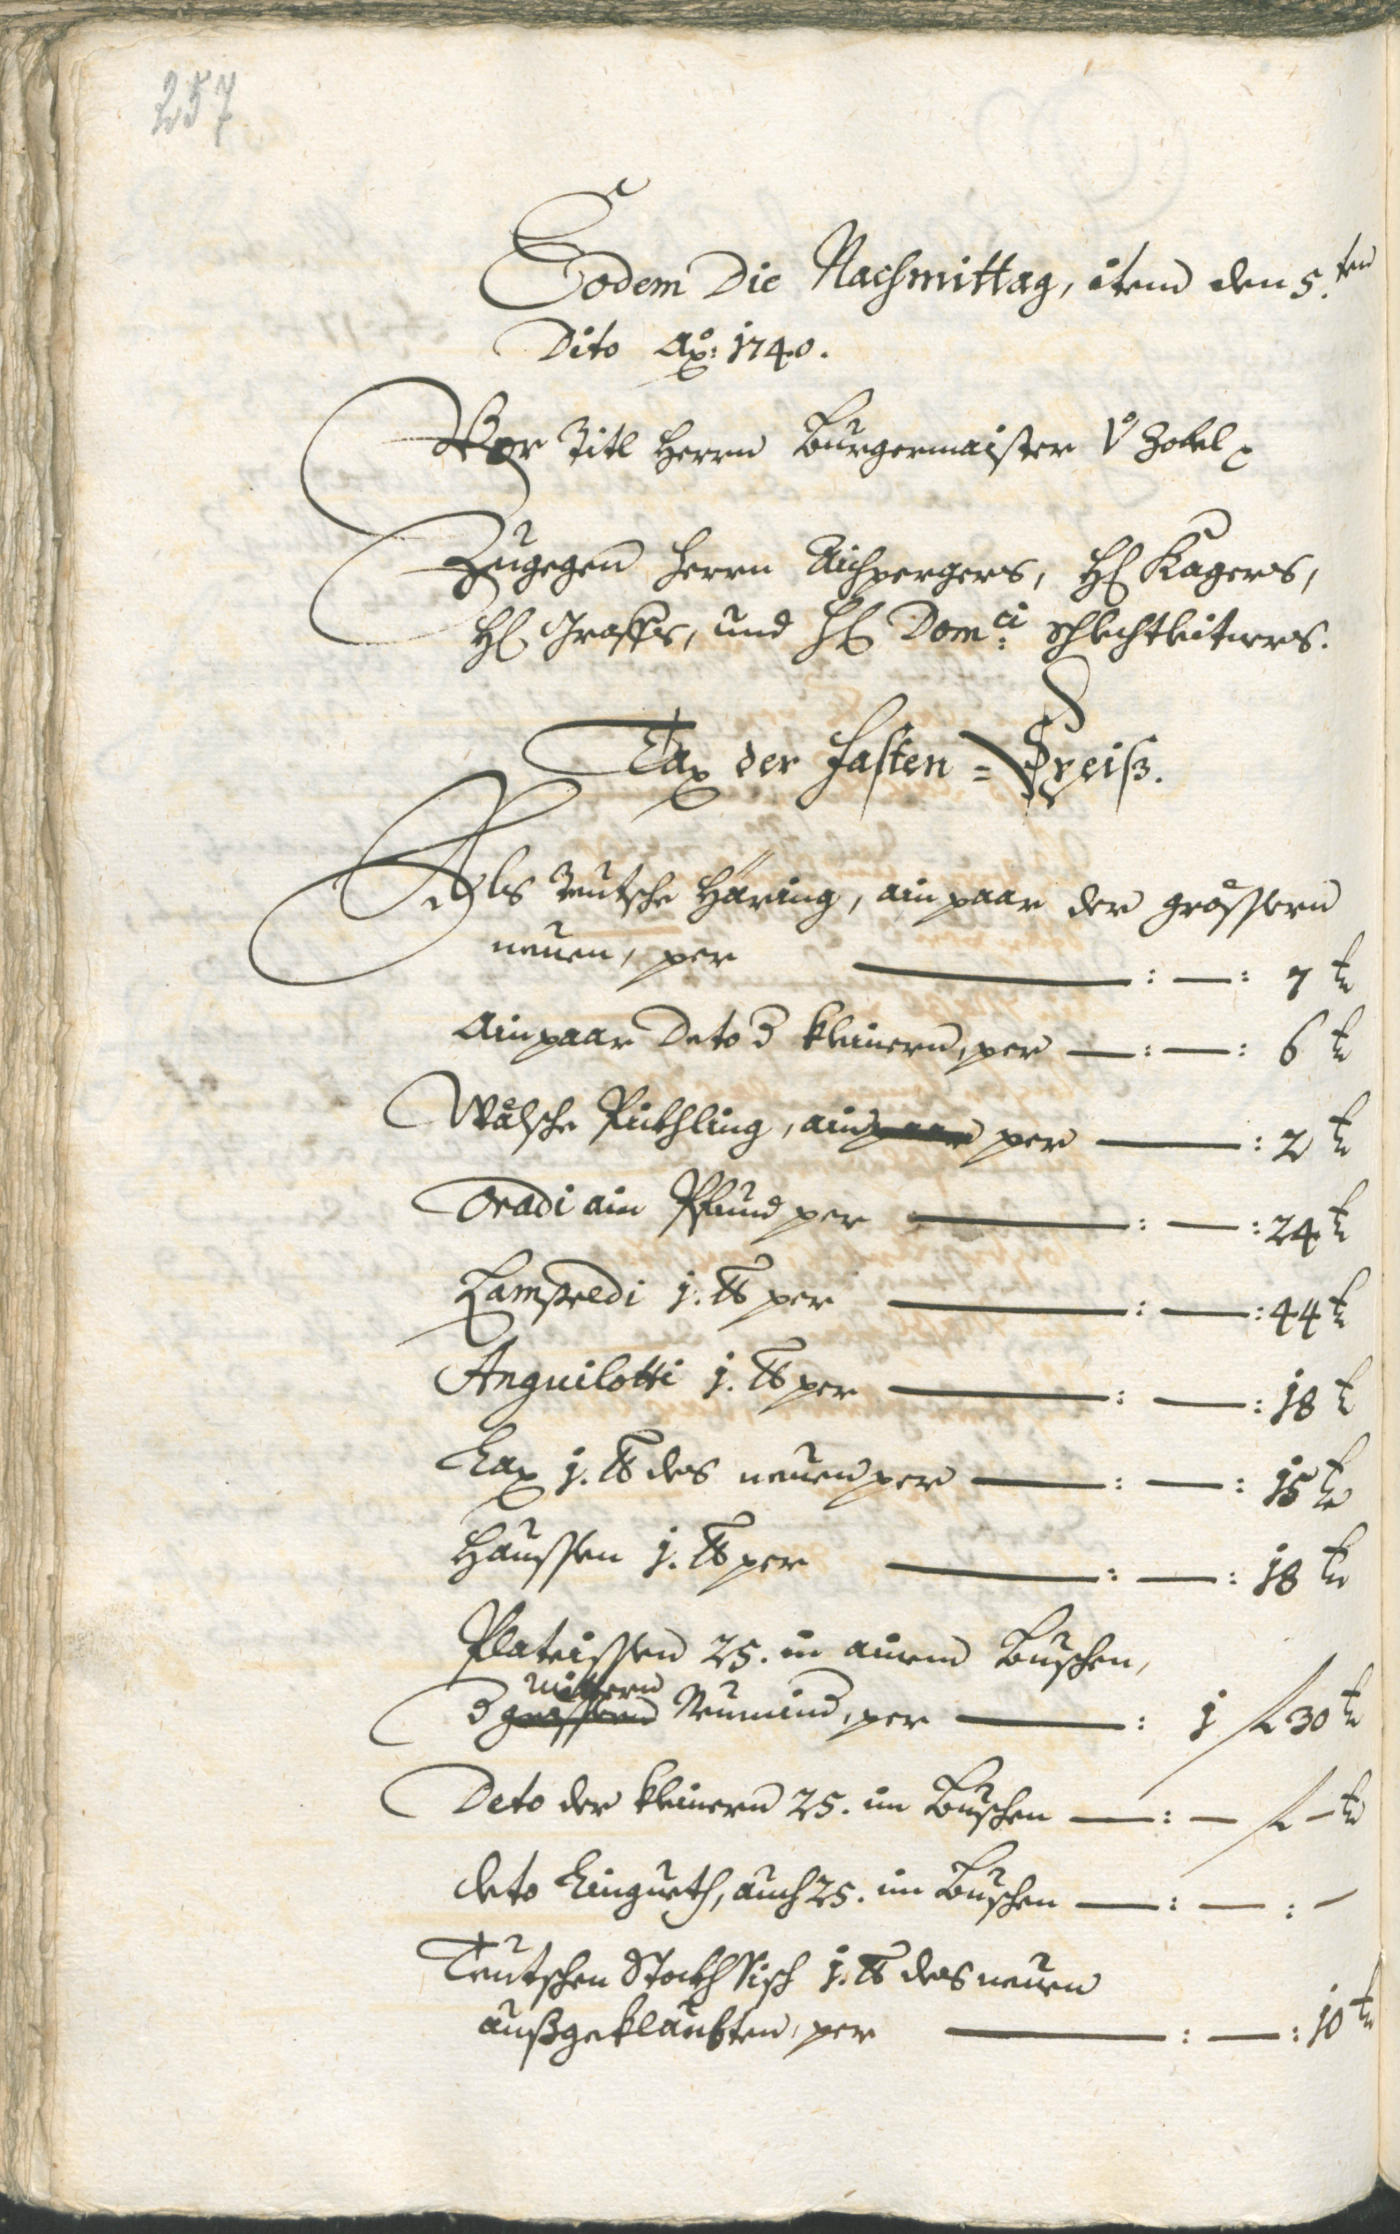 257
Eodem Die Nachmittag, item den 5.ten
Dito Aõ: 1740.
Vor Titl Herrn Burgermaister V Zobel
Zugegen Herrn Aichpergers, H: Kagers,
H: Graffs, und H: Domci: Schlechtleitners.
Tax der Fasten=Speiß.
Als Teutsche Häring, ain paar der grössern
neuen, per ——— : — : 7 kr
Ain paar Deto d kleinern, per — : — : 6 kr
Wälsche Pickhling, ain paar per ——— : 2 kr
Oradi ain Pfund per ——— : — : 24 kr
Lampredi 1. ℔ per ——— : — : 44 kr
Anguilotti 1. ℔ per ——— : — : 18 kr
Lax 1. ℔ des neuen per ——— : — : 15 kr
Haussen 1. ℔ per ——— : — : 18 kr
Plateissen 25. in ainem Buschen,
mittern
d grössern per ——— : 1 f 30 kr
Deto der kleinern 25. im Buschen — : — f — kr
deto auch 25. im Buschen — : — : —
Teutschen Stockhfisch 1. ℔ des neuen
außgeklaubten, per ——— : — : 10 kr